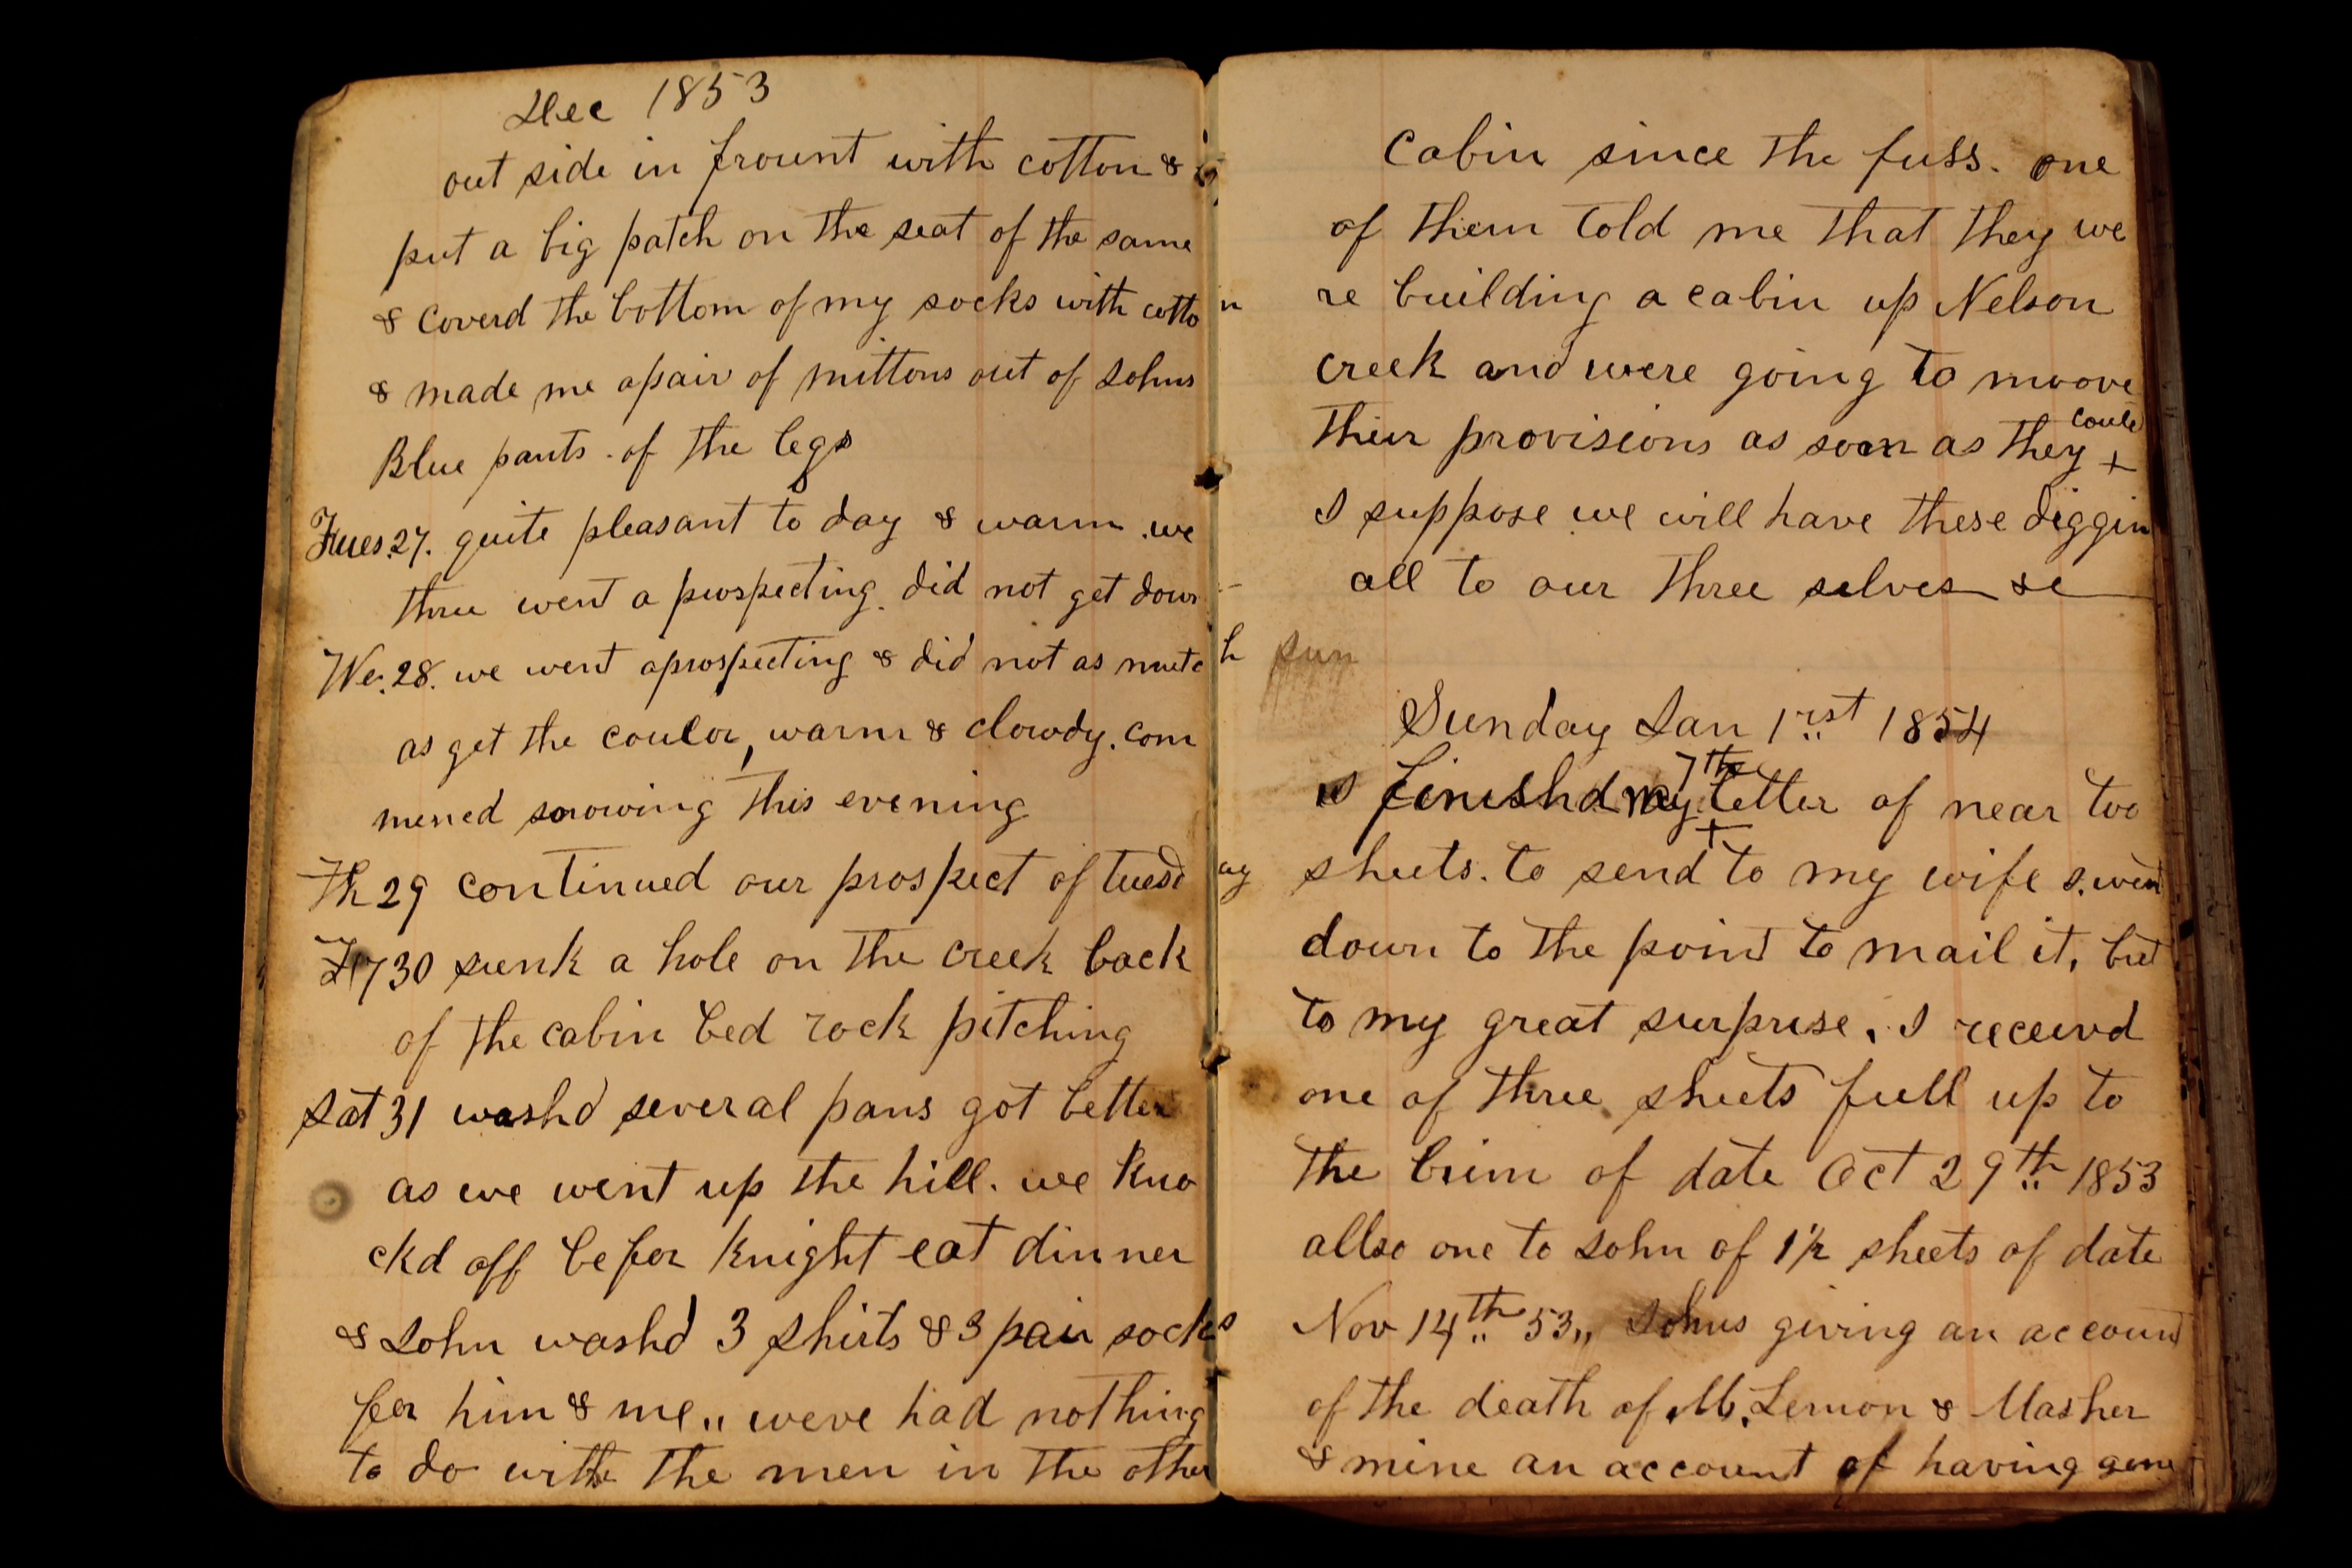 Dec 1853
out side in frount with cotton &
put a big patch on the seat of the same
& coverd the bottom of my socks with cotton
& made me apair of mittons out of Johns
Blue pants. of the legs
Tues.27. quite pleasant to day & warm. we
three went a prospecting. did not get down
We.28. we went aprospecting & did not as mutch
as get the coulor, warm & clowdy. com
mened snowing this evening
Th 29 continued our prospect of tuesday
30 sunk a hole on the creek back
of the cabin bed rock pitching
Sat 31 washd several pans got better
as we went up the hill. we kno
ckd off befor knight eat dinner
& John washd 3 shirts & 3 pair socks
for him & me,, weve had nothing
to do with the men in the other
cabin since the fuss. one
of them told me that they we
re building a cabin up Nelson
creek and were going to moove
their provisions as soon as they could +
I suppose we will have these diggin
all to our three selves &c
sun
Sunday Jan 1rst 1854
I finishd my 7th letter of near two
+
sheets. to send to my wife I. went
down to the point to mail it, but
to my great surprise, I receivd
one of three sheets full up to
the brim of date Oct 29th 1853
allso one to John of 1½ sheets of date
Nov 14th 53,, Johns giving an account
of the death of M. Lemon & Masher
& mine an account of having gone